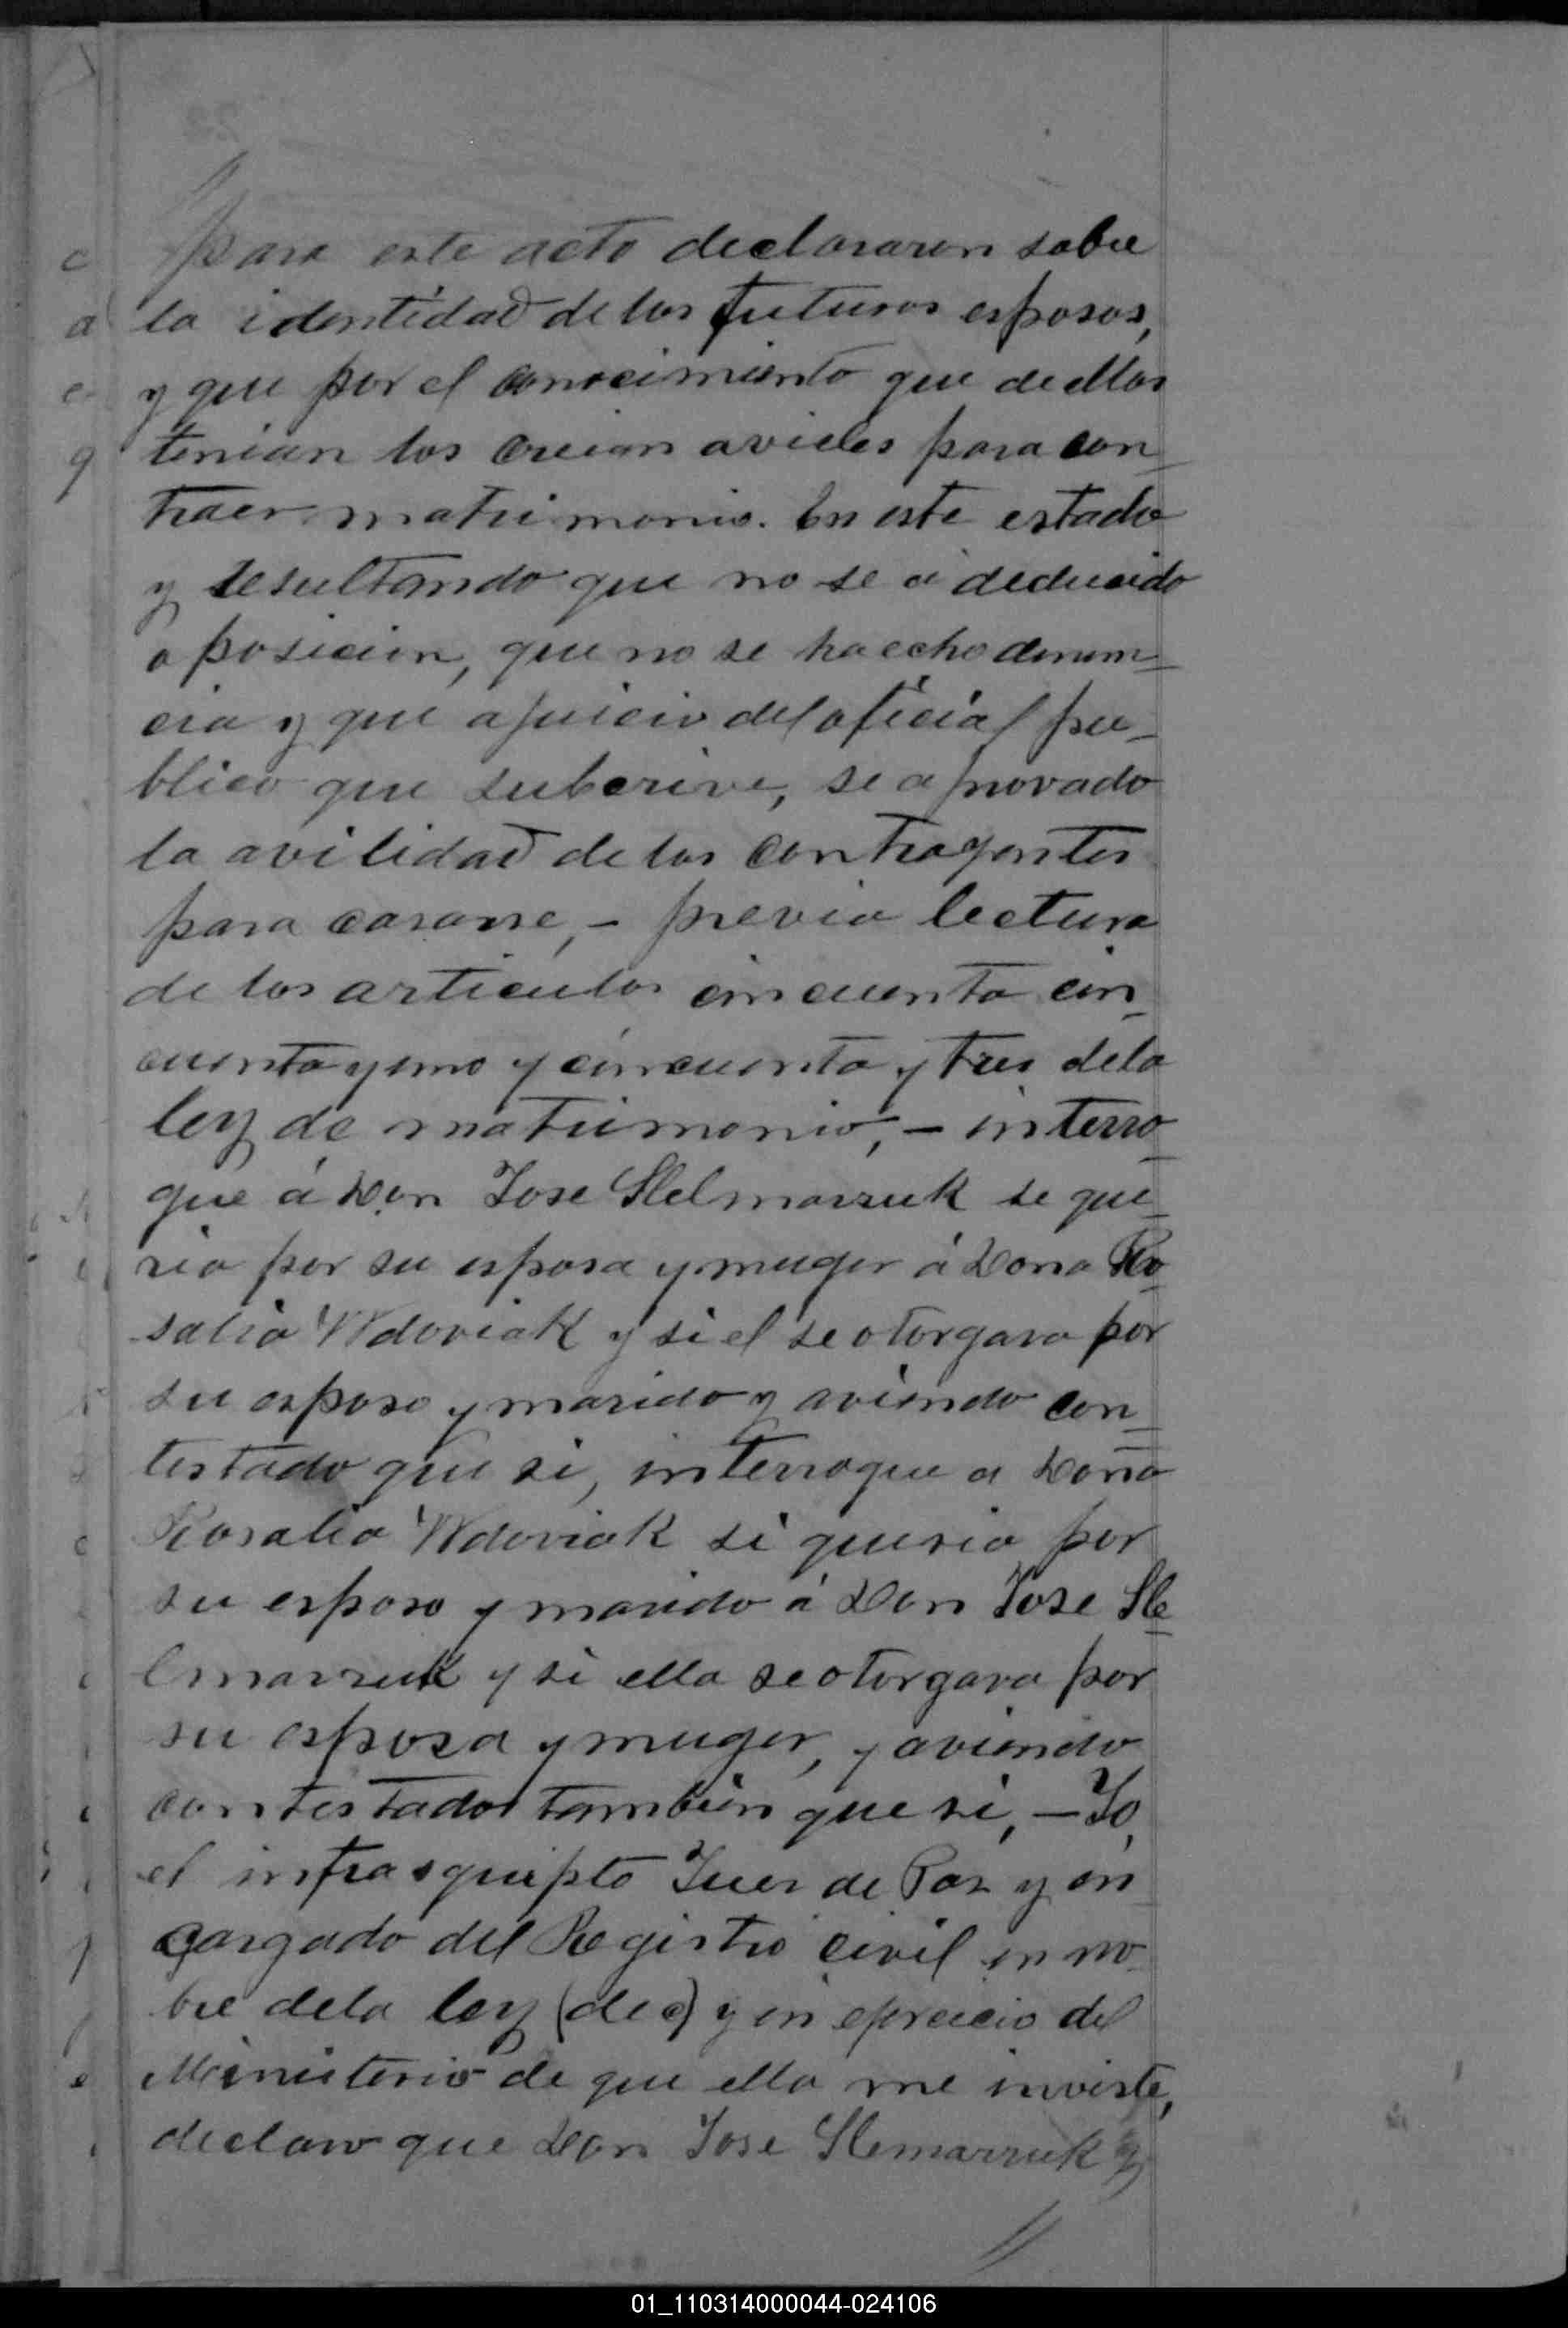 para este acto declararon sobre
la identidad de los futuros esposos,
y que por el conocimiento que de ellos
tenian los creian aviles para con_
traer matrimonio. En este estado
y resultando que no se á deducido
oposicion, que no se ha echo denun_
cia y que a juicio del oficial pu_
blico que subcrive, se a provado
la avilidad de los contrayentes
para casarse, - previa lectura
de los articulos cincuenta cin_
cuenta y uno y cincuenta y tres de la
ley de matrimonio, - interro_
gue á Don Jose Slelmarzuk se que_
ria por su esposa y muger á Dona Ro_
salia Wdoviak y si el se otorgava por
su esposo y marido y aviendo con_
testado que si, interrogue a Doña
Rosalia Wdoviak si queria por
su esposo y marido á Don Jose Sle_
lmarzuk y si ella se otorgava por
su esposa y muger, y aviendo
contestado tambien que si, - Yo,
el infrasquipto Juez de Paz y en
gargado del Registro civil en no_
bre de la ley (de c) y en ejercicio del
Ministerio de que ella me inviste,
declaro que Don Jose Slemarzuk y
//
01_110314000044-024106